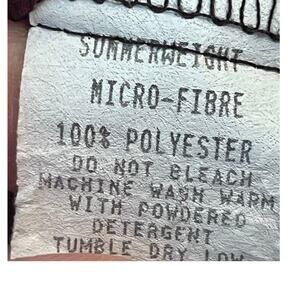 SUMMERWEIGHT
MICRO-FIBRE
100% POLYESTER
DO NOT BLEACH
MACHINE WASH WARM
WITH POWDERED
DETERGENT
TUMBLE DRY LOW